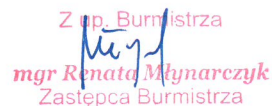 Z up. Burmistrza
mgr Renata Młynarczyk
Zastępca Burmistrza